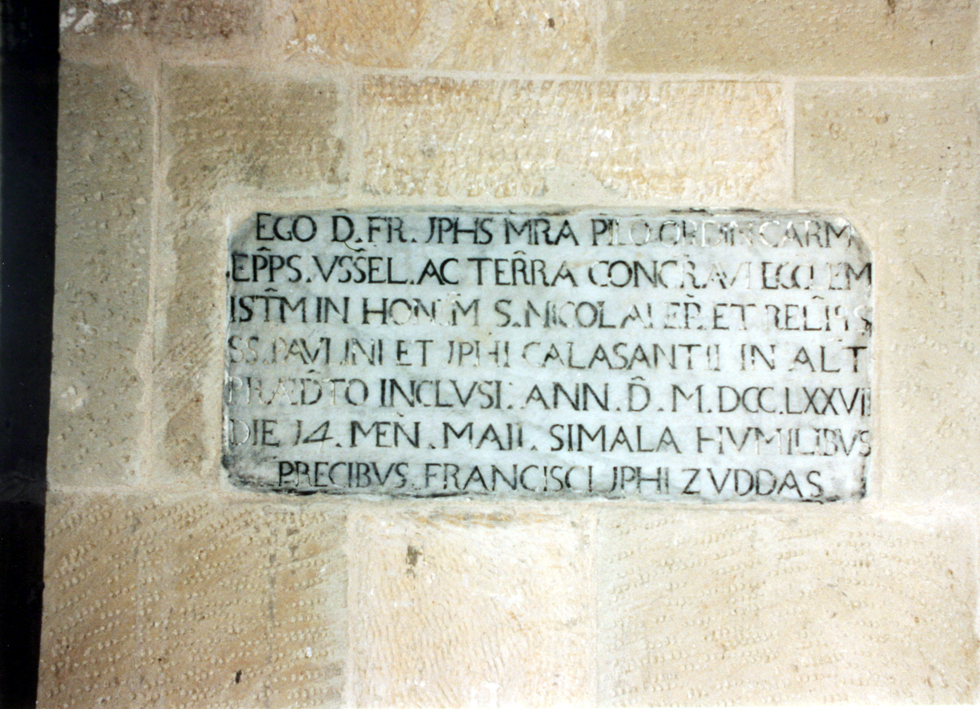 EGO D̂. FR. JPHS MR̃A PILO ORDIN CARM
EP̃PS. VSS̃EL. AC TER̃RA CONCR̃AVI ECCL EM
IST̃M IN HONOR̃M S. NICOLAI EP̃. ET RELI˜S
SS. PAVLINI ET JPHI CALASANTII IN ALT
PRÆD̃TO INCLVSI. ANN. D̃. M. DCC. LXXVII
DIE 14. MEN̄. MAII. SIMALA HVMILIBVS
PRECIBVS FRANCISCI JPHI ZVDDAS